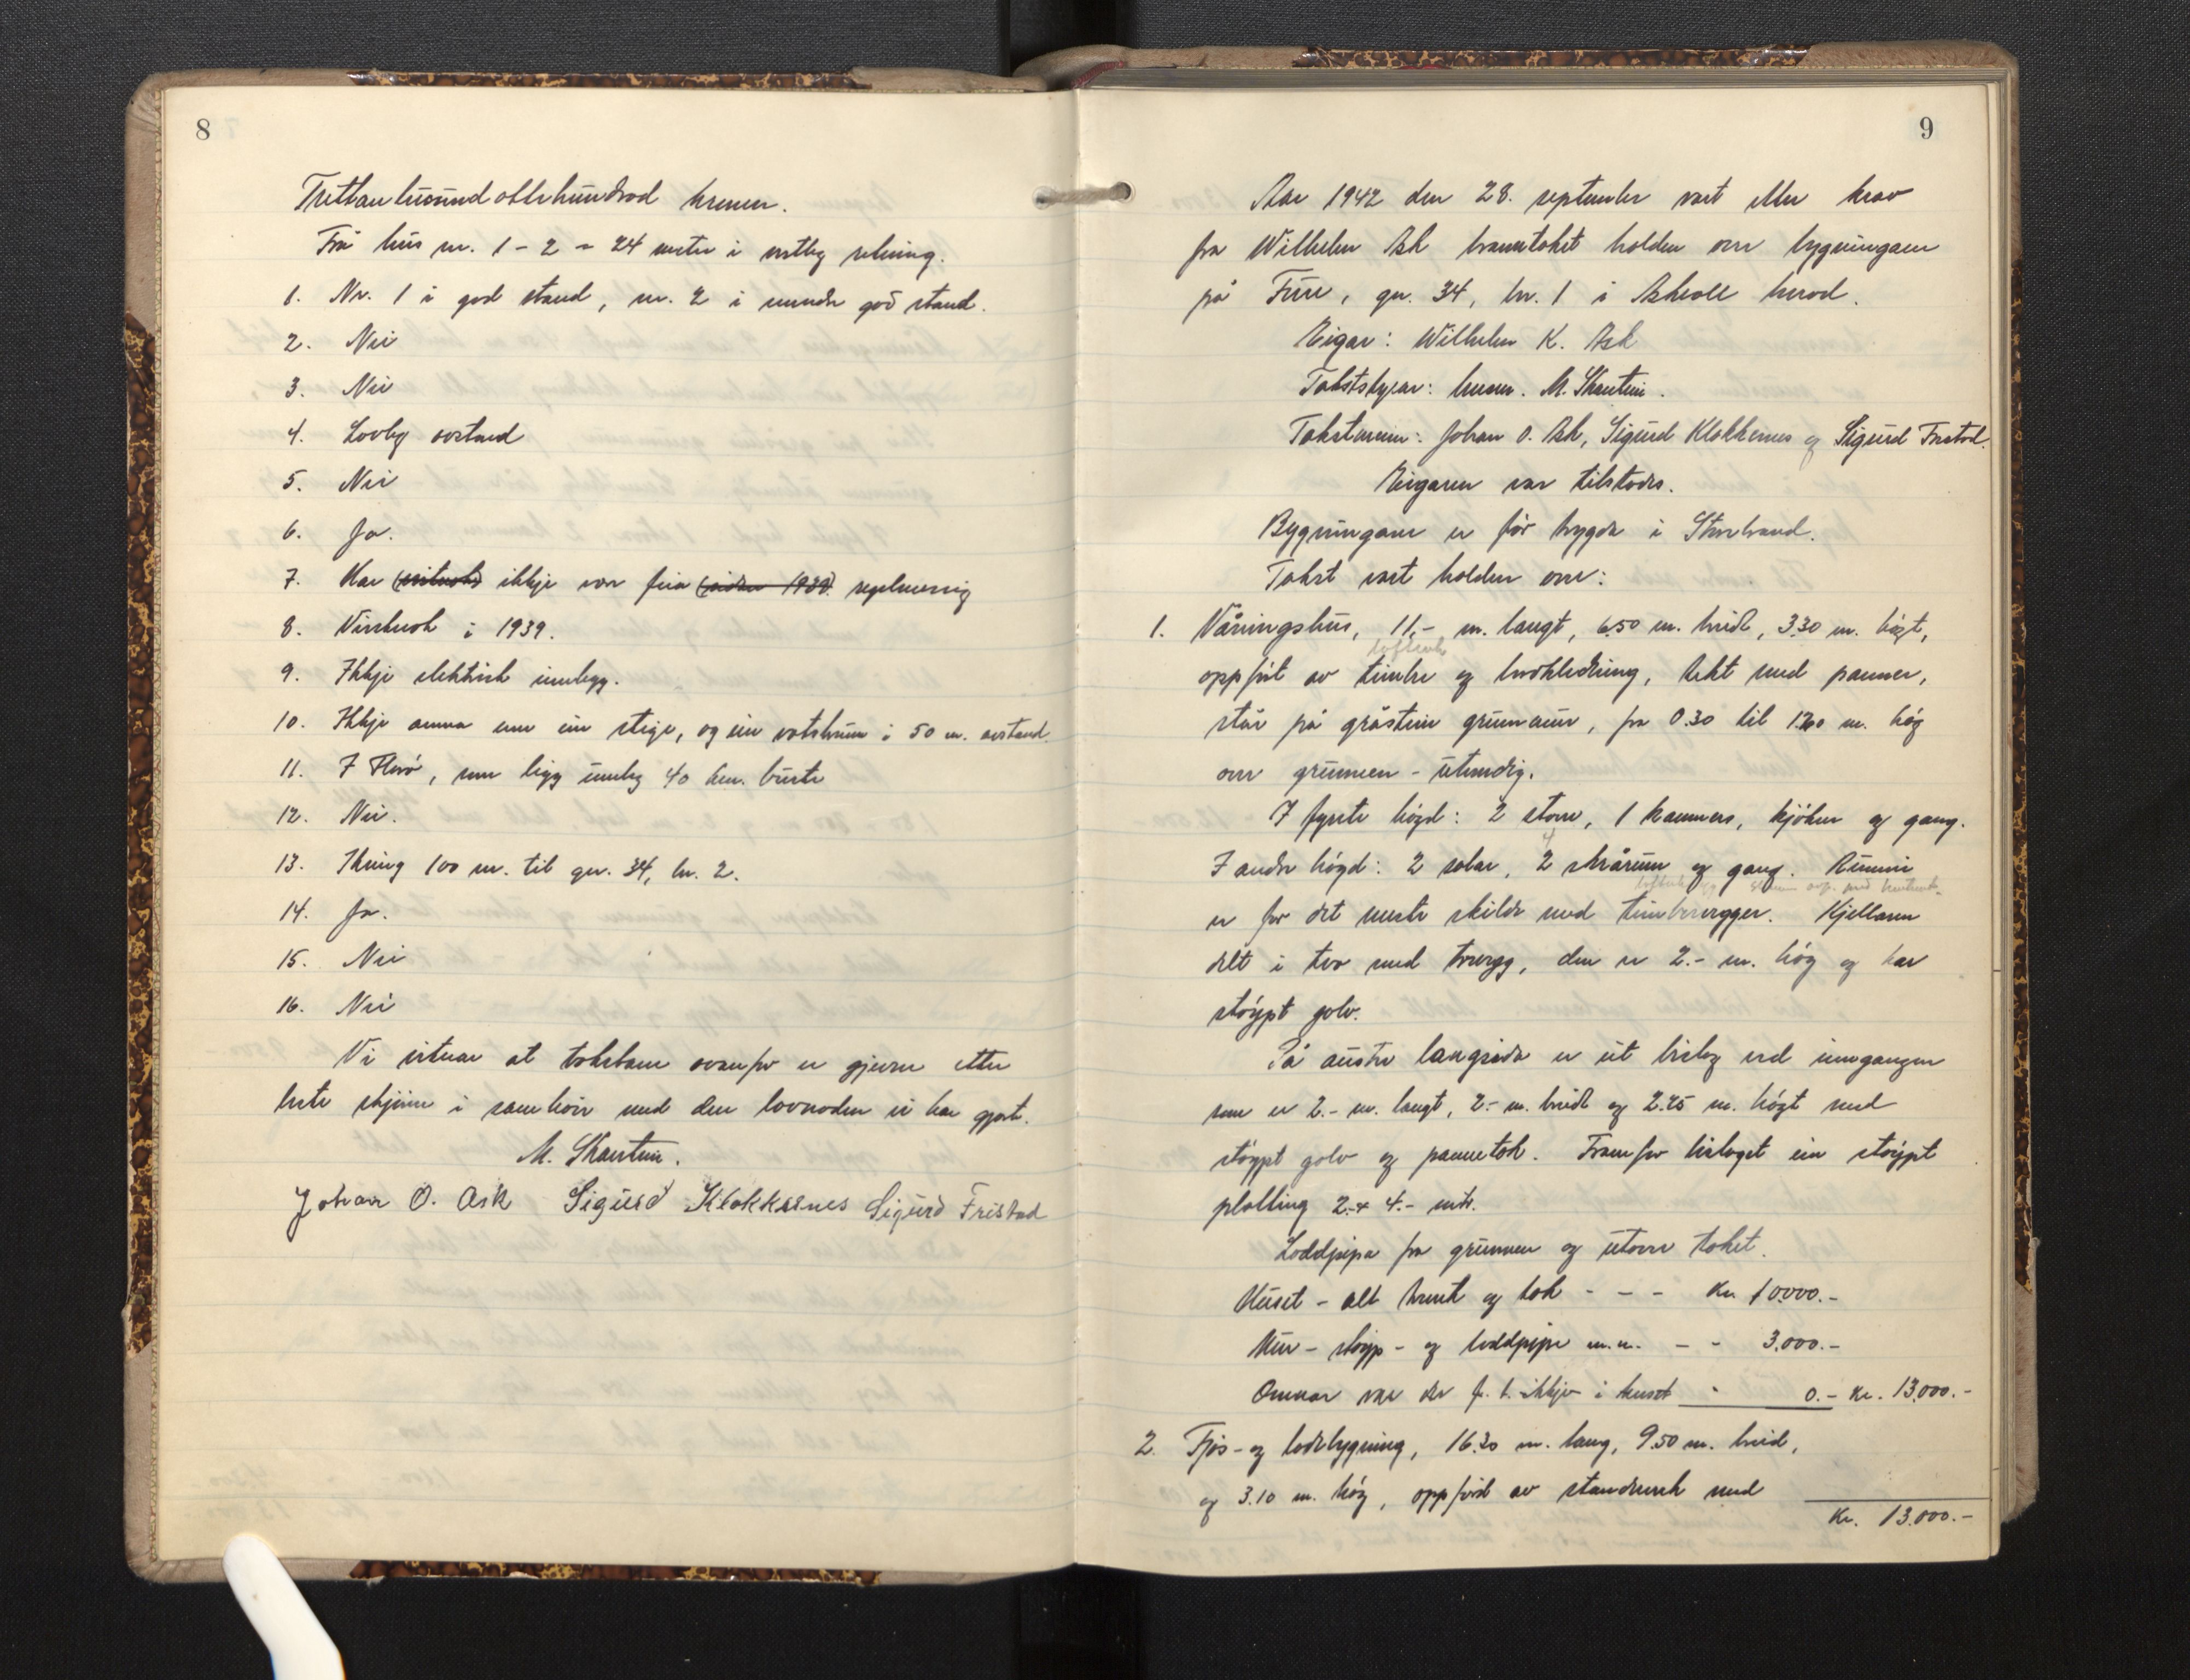 8
Trettantusundåttehundrad kronor.
Frå hus nr. 1 - 2 = 24 meter i vestleg retning.
1. Nr. 1 i god stand, nr. 2 i mindre god stand.
2. Nei
3. Nei
4. Lovleg avstand
5. Nei
6. Ja.
7. Har ikkje vore feia regelmessig
8. Visstnok i 1939.
9. Ikkje elektrisk innlegg.
10. Ikkje anna enn ein stige, og ein vatsbrunn i 50 m. avstand.
11. I Florö, som ligg umlag 40 km. burte
12. Nei.
13. Ikring 100 m. til gnr. 34, bnr. 2.
14. Ja.
15. Nei
16. Nei
Vi vitnar at takstane ovanfor er gjevne etter
beste skjönn i samhöve med den lovnaden vi har gjort.
M. Skarstein.
Johan O. Ask Sigurd Klokkernes Sigurd Fristad
9
Aar 1942 den 28. september vart etter krav
fra Wilhelm Ask branntakst halden over bygningane
på Fure, gnr. 34, bnr. 1 i Askvoll herad.
Eigar: Wilhelm K. Ask
Takststyrar: lensm. M. Skarstein.
Takstmenn: Johan O. Ask, Sigurd Klokkernes og Sigurd Fristad.
Eigaren var tilstades.
Bygningane er för trygda i Storbrand.
Takst vart halden over:
1. Våningshus, 11,- m. langt, 6.50 m. breidt, 3.30 m. högt,
oppfört av timber og bordkledning, tekt med panner,
står på gråstein grunnmur, fra 0.30 til 1.20 m. hög
over grunnen - utvendig.
I fyrste högd: 2 stover, 1 kammers, kjöken og gang.
I andre högd: 2 salar, 2 skrårum og gang. Rummi
er for det meste skilde med timbervegger. Kjellaren
delt i tvo med trevegg, den er 2.- m. hög og har
stöypt golv.
På austre langsida er eit bislag ved inngangen
som er 2.- m. langt, 2.- m. breidt og 2.25 m. högt med
stöypt golv og pannetak. Framfor bislaget ein stöypt
platting 2.- x 4.- mtr.
Loddpipa fra grunnen og utover taket.
Huset - alt treverk og tak - - - Kr. 10.000.-
Mur - stöyp - og loddpipe m.m. - - 3.000.-
Omnar var der f. t. ikkje i huset - 0.- Kr. 13.000.-
2. Fjös- og lödebygning, 16.20 m. lang, 9.50 m. breid,
og 3.10 m. hög, oppförd av standverk med
Kr. 13.000.-